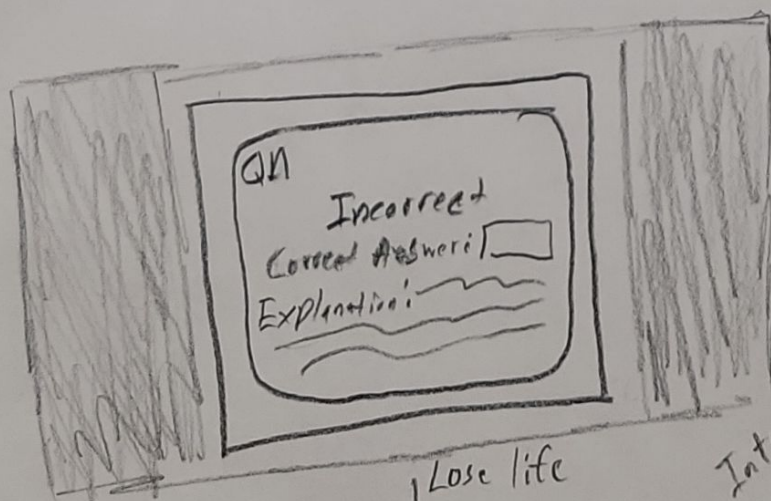 QN
Incorrect
Correct Answer:
Explanation:
Lose life
Int